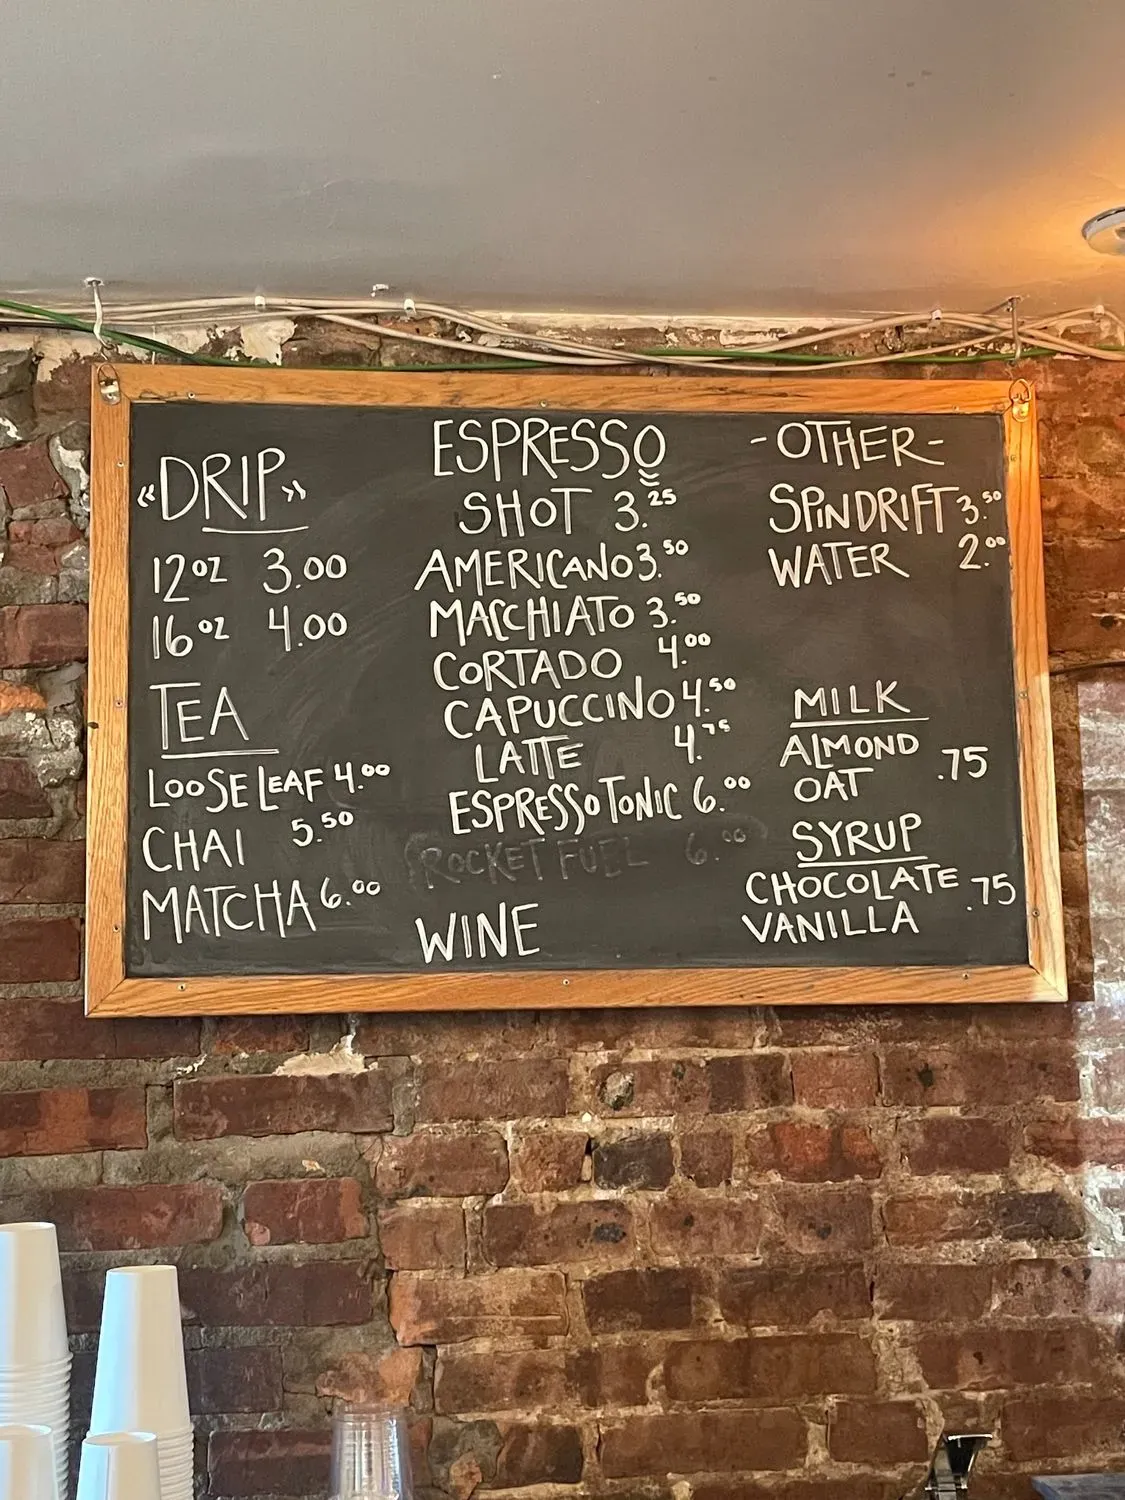 «DRIP»
12oz 3.00
16oz 4.00
TEA
LOOSE LEAF 4.00
CHAI 5.50
MATCHA 6.00
ESPRESSO
SHOT 3.25
AMERICANO 3.50
MACCHIATO 3.50
CORTADO 4.00
CAPUCCINO 4.50
LATTE 4.75
ESPRESSO TONIC 6.00
ROCKET FUEL 6.00
WINE
-OTHER-
SPINDRIFT 3.50
WATER 2.00
MILK
ALMOND
OAT .75
SYRUP
CHOCOLATE .75
VANILLA